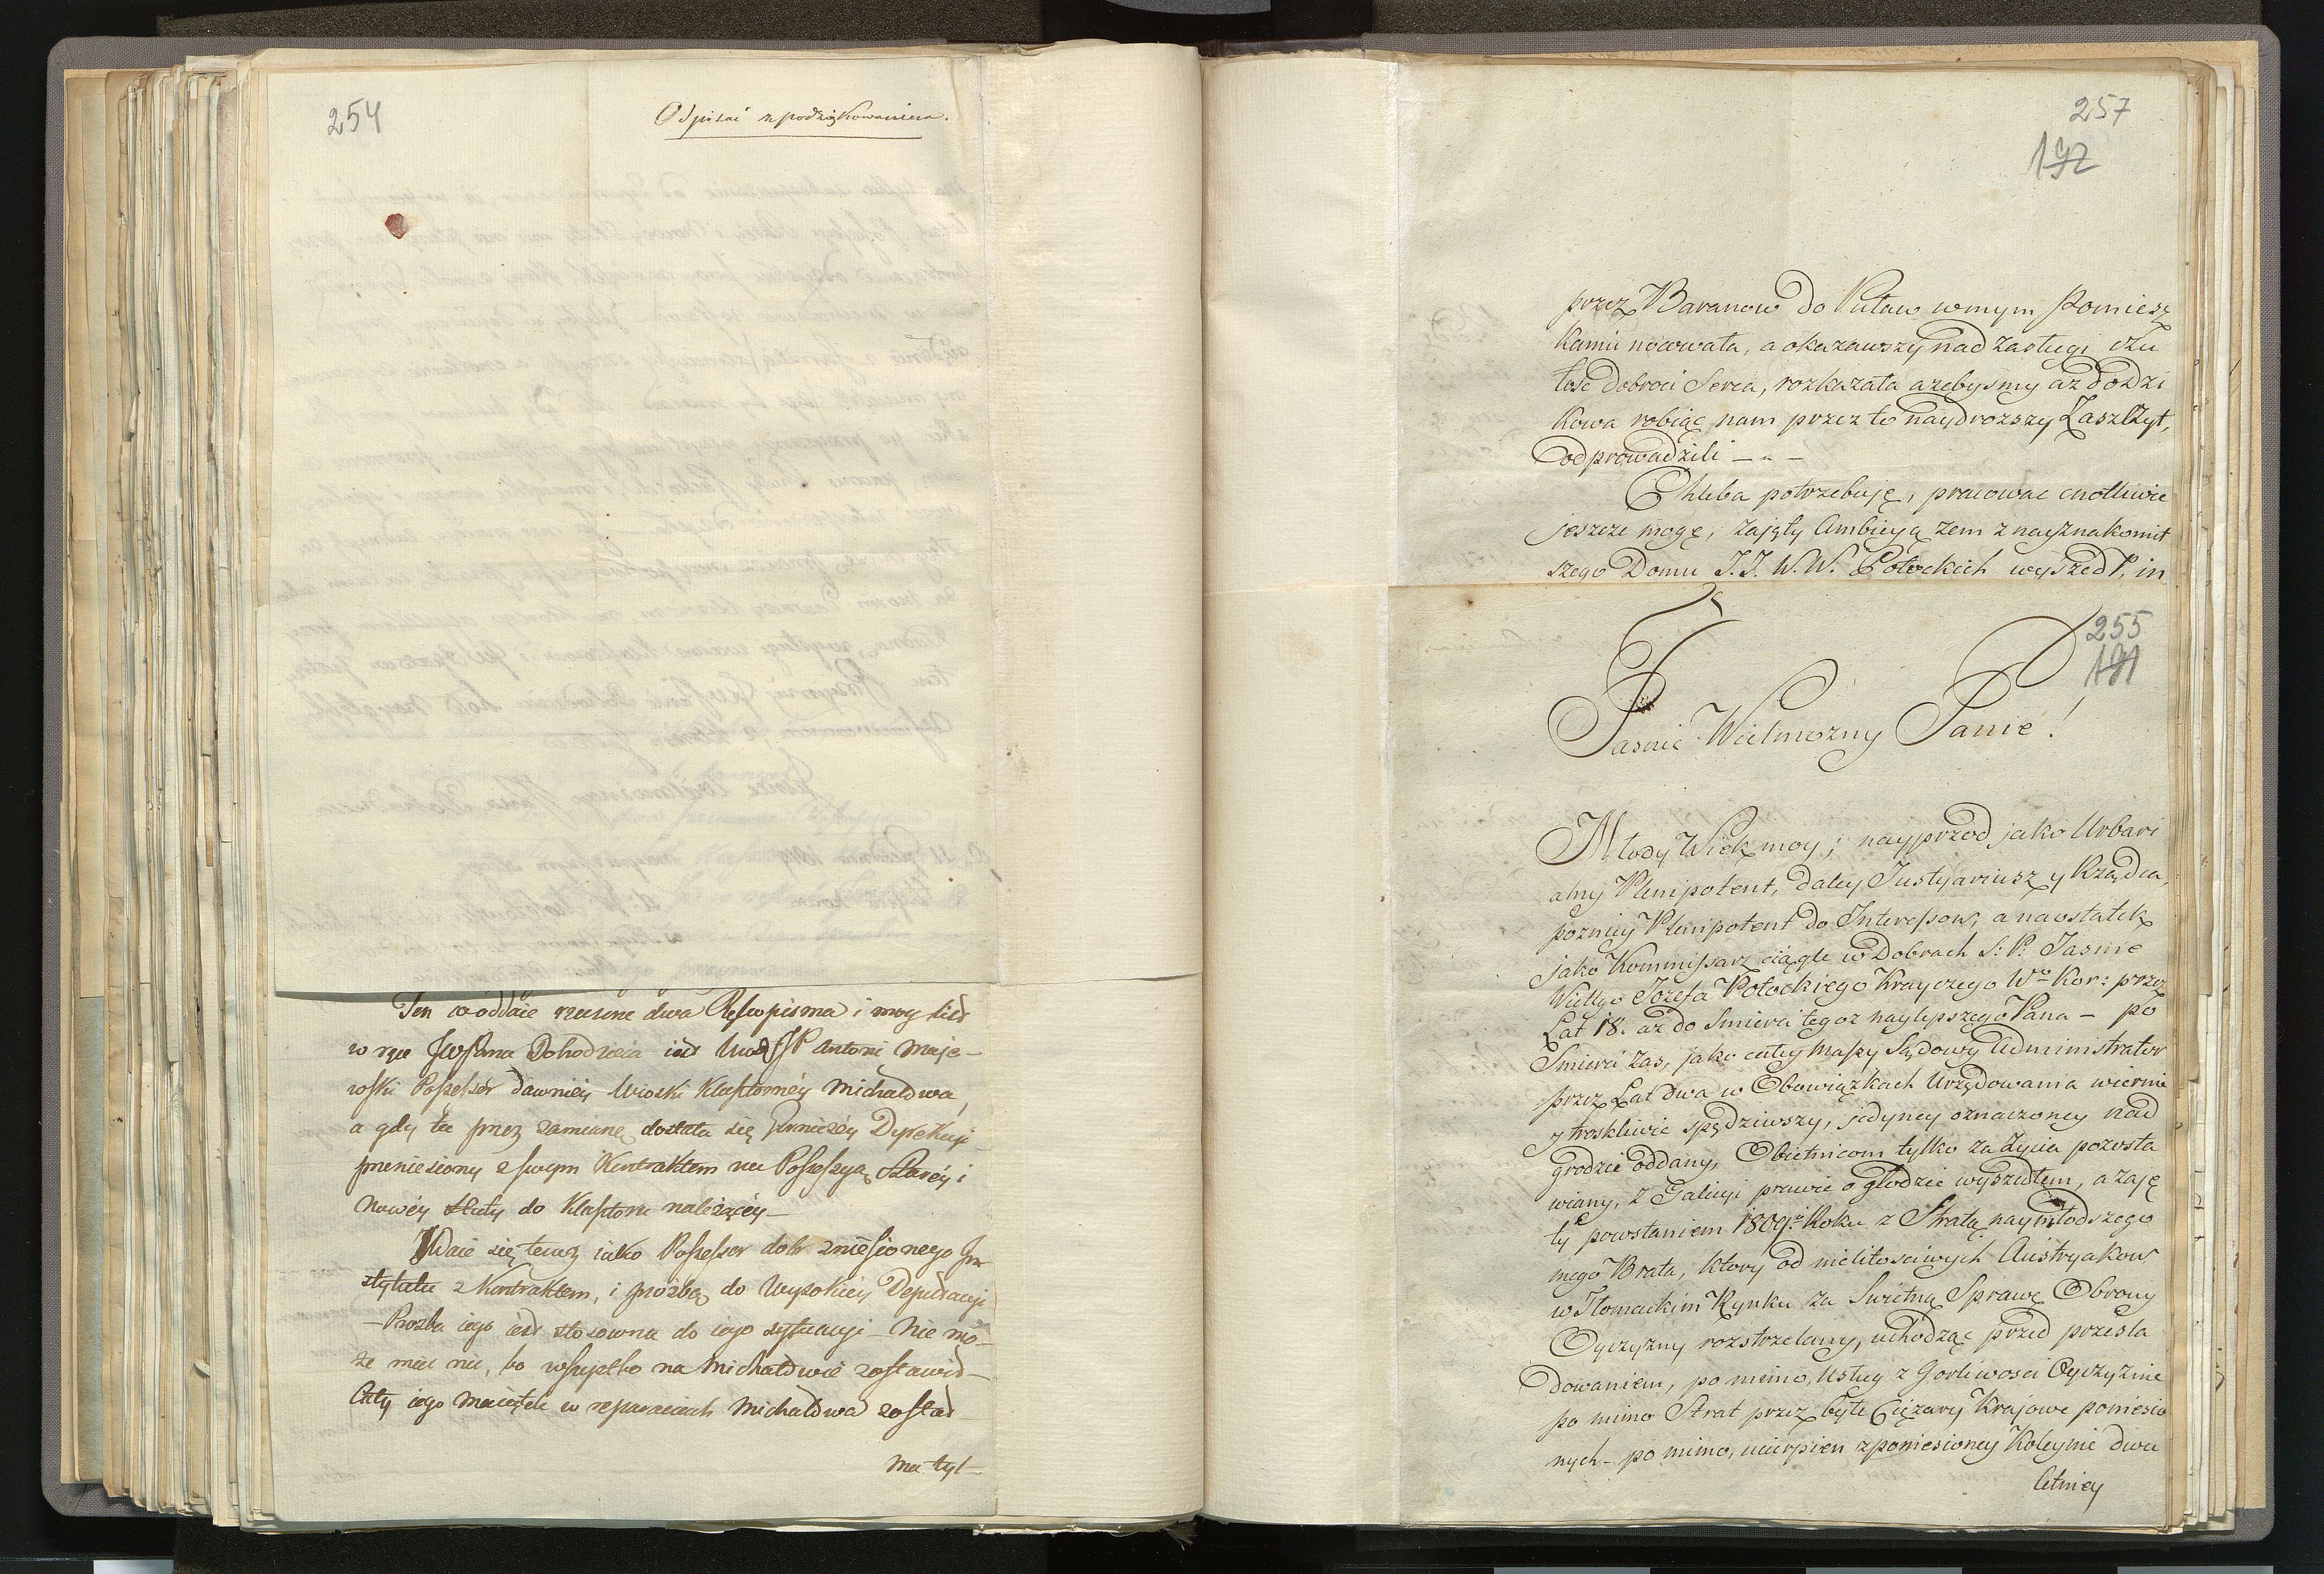 254
Odpisać z podziękowaniem.
Ten co oddaie rzeczone dwa Rękopisma i moy list
w ręce JWPana Dobrodzieia iest JP Antoni Maje-
wski Possessor dawniey Wioski Klasztorney Michałowa,
a gdy ta przez zamianę dostała się Dyrekcyi
przeniesiony z swym Kontraktem na Possessyą Starey i
Nowey Huty do Klasztoru należącey –
Udaie się teraz iako Possessor dobr zniesionego In
stytutu z Kontraktem, i prozbą do Wysokiey Deputacyi
– Prozba iego iest stosowna do iego sytuacyi – Nie mo-
że miec nic, bo wszystko na Michałowie zostawił –
Cały iego maiątek w reparaciach Michałowa został
Ma tyl-
257
192
przez Baranow do Puław w mym Pomiesz
kaniu nowała, a okazawszy nad zasługi czu
łość dobroci Serca, rozkazała azebysmy az do Dzi
kowa robiąc nam przez to naydrozszy Zaszczyt,
odprowadzili – „ –
Chleba potrzebuję, pracowac cnotliwie
jeszcze mogę, zajęty Ambicyą zem z nayznakomit
szego Domu J.J. W.W. Potockich wyszedł, in
255
191
Jasnie Wielmozny Panie!
Młody Wiek moy; nayprzod jako Urbari
alny Plenipotent, daley Justycyariusz y Rządca,
pozniey Plenipotent do Interessow, a naostatek
jako Kommissarz ciągle w Dobrach S: P. Jasnie
Wielgo Jozefa Potockiego Krayczego Wo Kor: przez
Lat 18. az do Smierci tegoz naylepszego Pana – po
Smierci zas, jako całey Massy Sądowy Administrator
przez Lat dwa w Obowiązkach Urzędowania wiernie
y troskliwie spędziwszy, jedyney oznaczoney nad
grodzie oddany, Obietnicom tylko za zycia pozosta
wiany, z Galicyi prawie o głodzie wyszedłem, a zaję
ty powstaniem 1809º Roku z Stratą naymłodszego
mego Brata, ktory od nielitosciwych Austryakow
w Tłomackim Rynku za Swietną Sprawę Obrony
Oyczyzny rozstrzelany, uchodząc przed przesla
dowaniem, po mimo, Usług z Gorliwosci Oyczyznie
po mimo Strat przez byłe Ciężary Krajowe poniesio
nych – po mimo, ucierpien z poniesioney Koleynie dwu
letniey